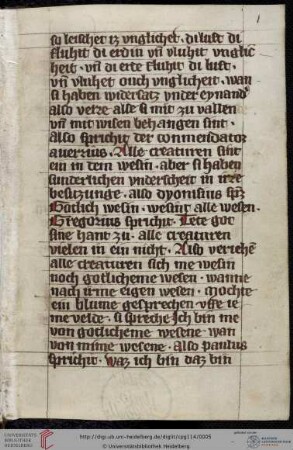 1
su leischet iz vnglichet. di luft di
fluhit di erdin vn̄ vluhit vnglic
heit. vn̄ di erte fluhit di luft.
vn̄ vluhet ouch vnglicheit. wan
si haben widersatz vnder eynand
also verre alse si mit zu vallen
vn̄ mit wisen behangen sint.
also sprichit der commendator
auerrius. Alle creaturen sint
ein in dem wesin. aber si haben
sunderlichen vnderscheit in irre
besitzunge. also dyonisius spͥcͭ
Gotlich wesin. wesint alle wesen.
Gregorius sprichit. Lete got
sine hant zu. alle creaturen
vielen in ein nicht. Also verichē
alle creaturen sich me wesin
noch gotlicheme wesen. wanne
nach irme eigen wesen. Mochte
ein blume gesprechen vffe ie
me velde. si spreche Ich bin me
von gotlicheme wesene wan
von mime wesene. Also paulus
sprichit. waz ich bin daz bin
UNIVERSITÄTS-
BIBLIOTHEK
HEIDELBERG
http://digi.ub.uni-heidelberg.de/diglit/cpg114/0005
© Universitätsbibliothek Heidelberg